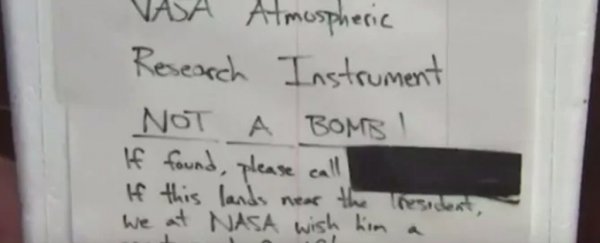 NASA Atmospheric
Research Instrument
NOT A BOMB!
If found, please call
If this lands near the President,
we at NASA wish him a